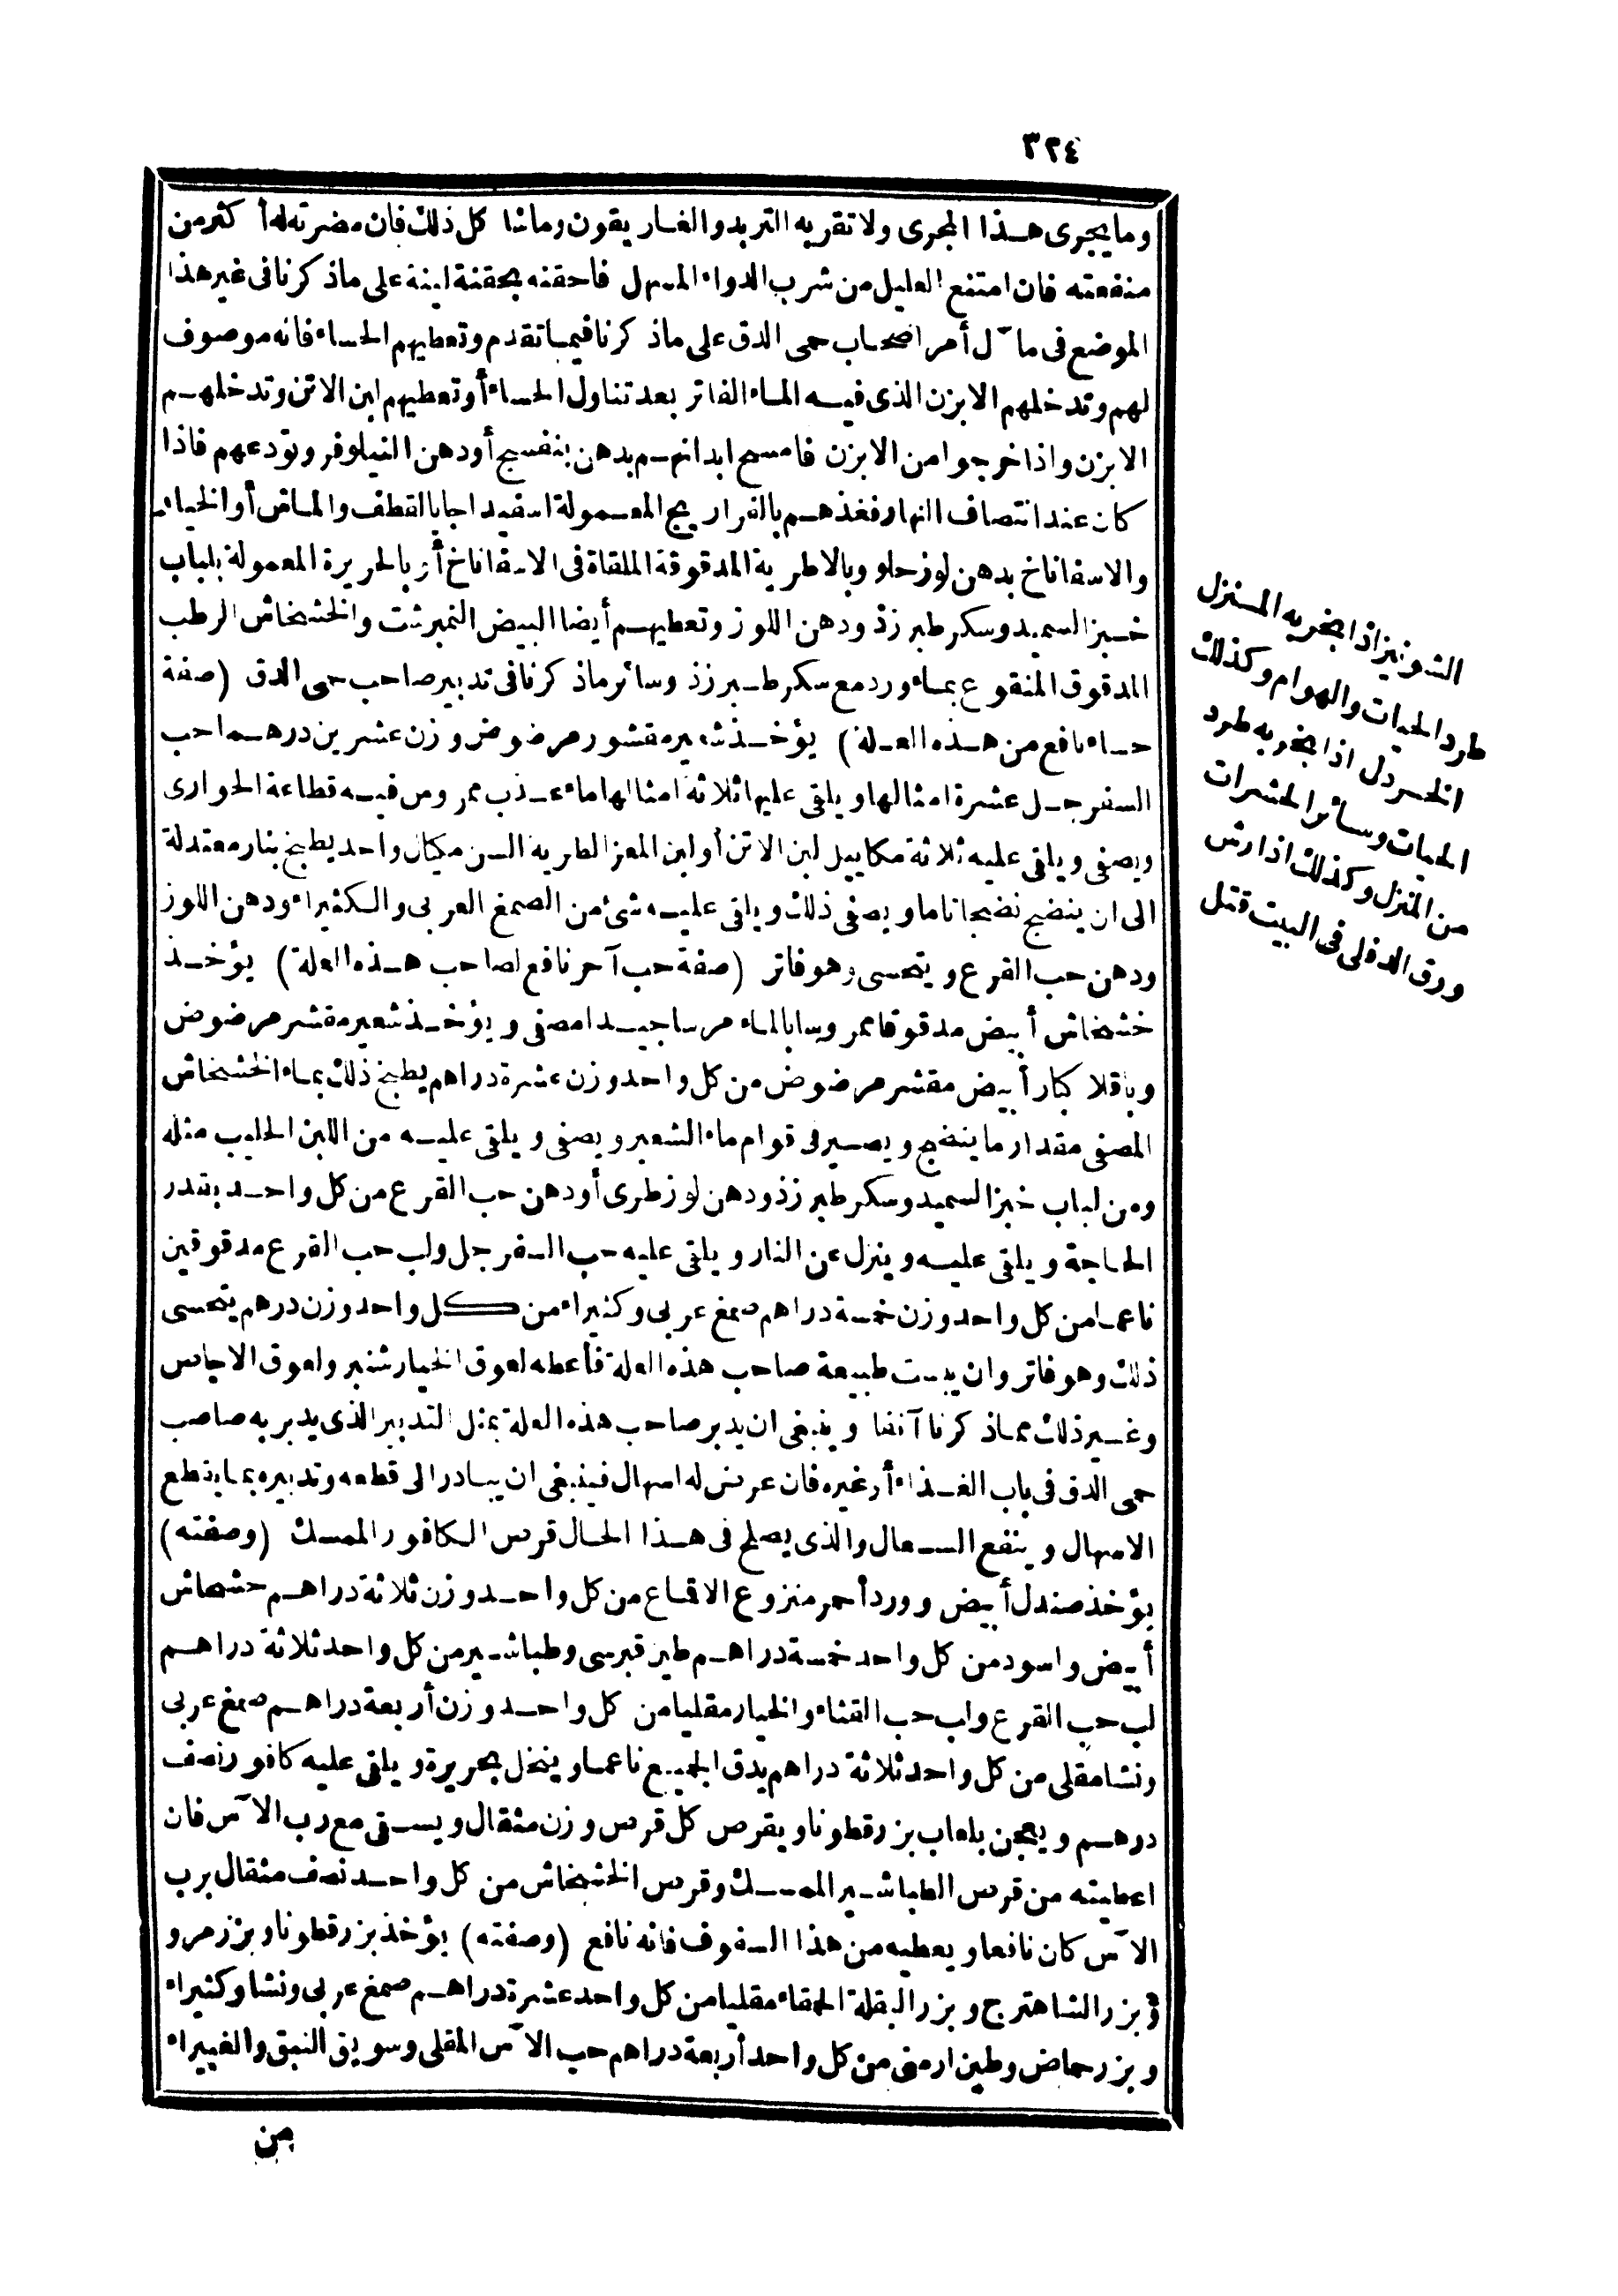 ٣٢٤
وما يجرى هذا المجرى ولا تقربه التربد والغاريقون وماشا كل ذلك فان مضرته له أكثر من
منفعته فان امتنع العليل من شرب الدواء المسهل فاحقنه بحقنة لينة على ماذكرنا فى غير هذا
الموضع فى مآل أمر اصحاب حمى الدق على ماذكرنا فيما تقدم وتعطيهم الحساء فانه موصوف
لهم وتدخلهم الابزن الذى فيه الماء الفاتر بعد تناول الحساء أوتعطيهم لبن الاتن وتدخلهم
الابزن واذا خرجوا من الابزن فامسح ابدانهم بدهن بنفسج أودهن النيلوفر وتودعهم فاذا
كان عند انتصاف النهار فغذهم بالفراريج المعمولة اسفيداجا بالقطف والماش أوالخيار
والاسفاناخ بدهن لوزحلو وبالاطرية المدقوقة الملقاة فى الاسفاناخ أوبالحريرة المعمولة بلباب
خبز السميد وسكر طبرزذ ودهن اللوز وتعطيهم أيضا البيض النمبرشت والخشخاش الرطب
المدقوق المنقوع بماء ورد مع سكر طبرزذ وسائر ماذكرنا فى تدبير صاحب حمى الدق (صفة
حساء نافع من هذه العلة) يؤخذ شعير مقشور مرضوض وزن عشرين درهما حب
السفرجل عشرة امثالها ويلقى عليها ثلاثة امثالها ماء عذب ممروس فيه قطاعة الحوارى
ويصفى ويلقى عليه ثلاثة مكاييل لبن الاتن أولبن المعز الطرية السن مكيال واحد يطبخ بنار معتدلة
الى ان ينضج نضجا تاما ويصفى ذلك ويلقى عليه شئ من الصمغ العربى والكثيراء ودهن اللوز
ودهن حب القرع ويتحسى وهو فاتر (صفة حب آخر نافع لصاحب هذه العلة) يؤخذ
خشخاش أبيض مدقوقا ممروسا بالماء مرسا جيدا مصفى ويؤخذ شعير مقشر مرضوض
وباقلا كبار أبيض مقشر مرضوض من كل واحد وزن عشرة دراهم يطبخ ذلك بماء الخشخاش
المصفى مقدار ما ينضج ويصير فى قوام ماء الشعير ويصفى ويلقى عليه من اللبن الحليب مثله
ومن لباب خبز السميد وسكر طبرزذ ودهن لوز طرى أودهن حب القرع من كل واحد بقدر
الحاجة ويلقى عليه وينزل عن النار ويلقى عليه حب السفرجل ولب حب القرع مدقوقين
ناعما من كل واحد وزن خمسة دراهم صمغ عربى وكثيراء من كل واحد وزن درهم يتحسى
ذلك وهو فاتر وان يبست طبيعة صاحب هذه العلة فأعطه لعوق الخيارشنبر ولعوق الاجاص
وغير ذلك مماذكرنا آنفا وينبغى ان يدبر صاحب هذه العلة بمثل التدبير الذى يدبر به صاحب
حمى الدق فى باب الغذاء أوغيره فان عرض له اسهال فينبغى ان يبادر الى قطعه وتدبيره بما يقطع
الاسهال وينفع السعال والذى يصلح فى هذا الحال قرص الكافور الممسك (وصفته)
يؤخذ صندل أبيض وورد أحمر منزوع الاقماع من كل واحد وزن ثلاثة دراهم خشخاش
أبيض واسود من كل واحد خمسة دراهم طين قبرسى وطباشير من كل واحد ثلاثة دراهم
لب حب القرع ولب حب القثاء والخيار مقليا من كل واحد وزن أربعة دراهم صمغ عربى
ونشا مقلى من كل واحد ثلاثة دراهم يدق الجميع ناعما وينخل بحريرة ويلقى عليه كافور نصف
درهم ويعجن بلعاب بزرقطونا ويقرص كل قرص وزن مثقال ويسقى مع رب الآس فان
اعطيته من قرص الطباشير الممسك وقرص الخشخاش من كل واحد نصف مثقال برب
الآس كان نافعا ويعطيه من هذا السفوف فانه نافع (وصفته) يؤخذ بزرقطونا وبزر مرو
وبزر الشاهترج وبزر البقلة الحمقاء مقليا من كل واحد عشرة دراهم صمغ عربى ونشا وكثيراء
وبزر حماض وطين ارمنى من كل واحد أربعة دراهم حب الآس المقلى وسويق النبق والغبيراء
من
الشونيز اذا بخر به المنزل
طرد الحيات والهوام وكذلك
الخردل اذا بخر به طرد
الحيات وسائر الحشرات
من المنزل وكذلك اذا رش
ورق الدفلى فى البيت قتل